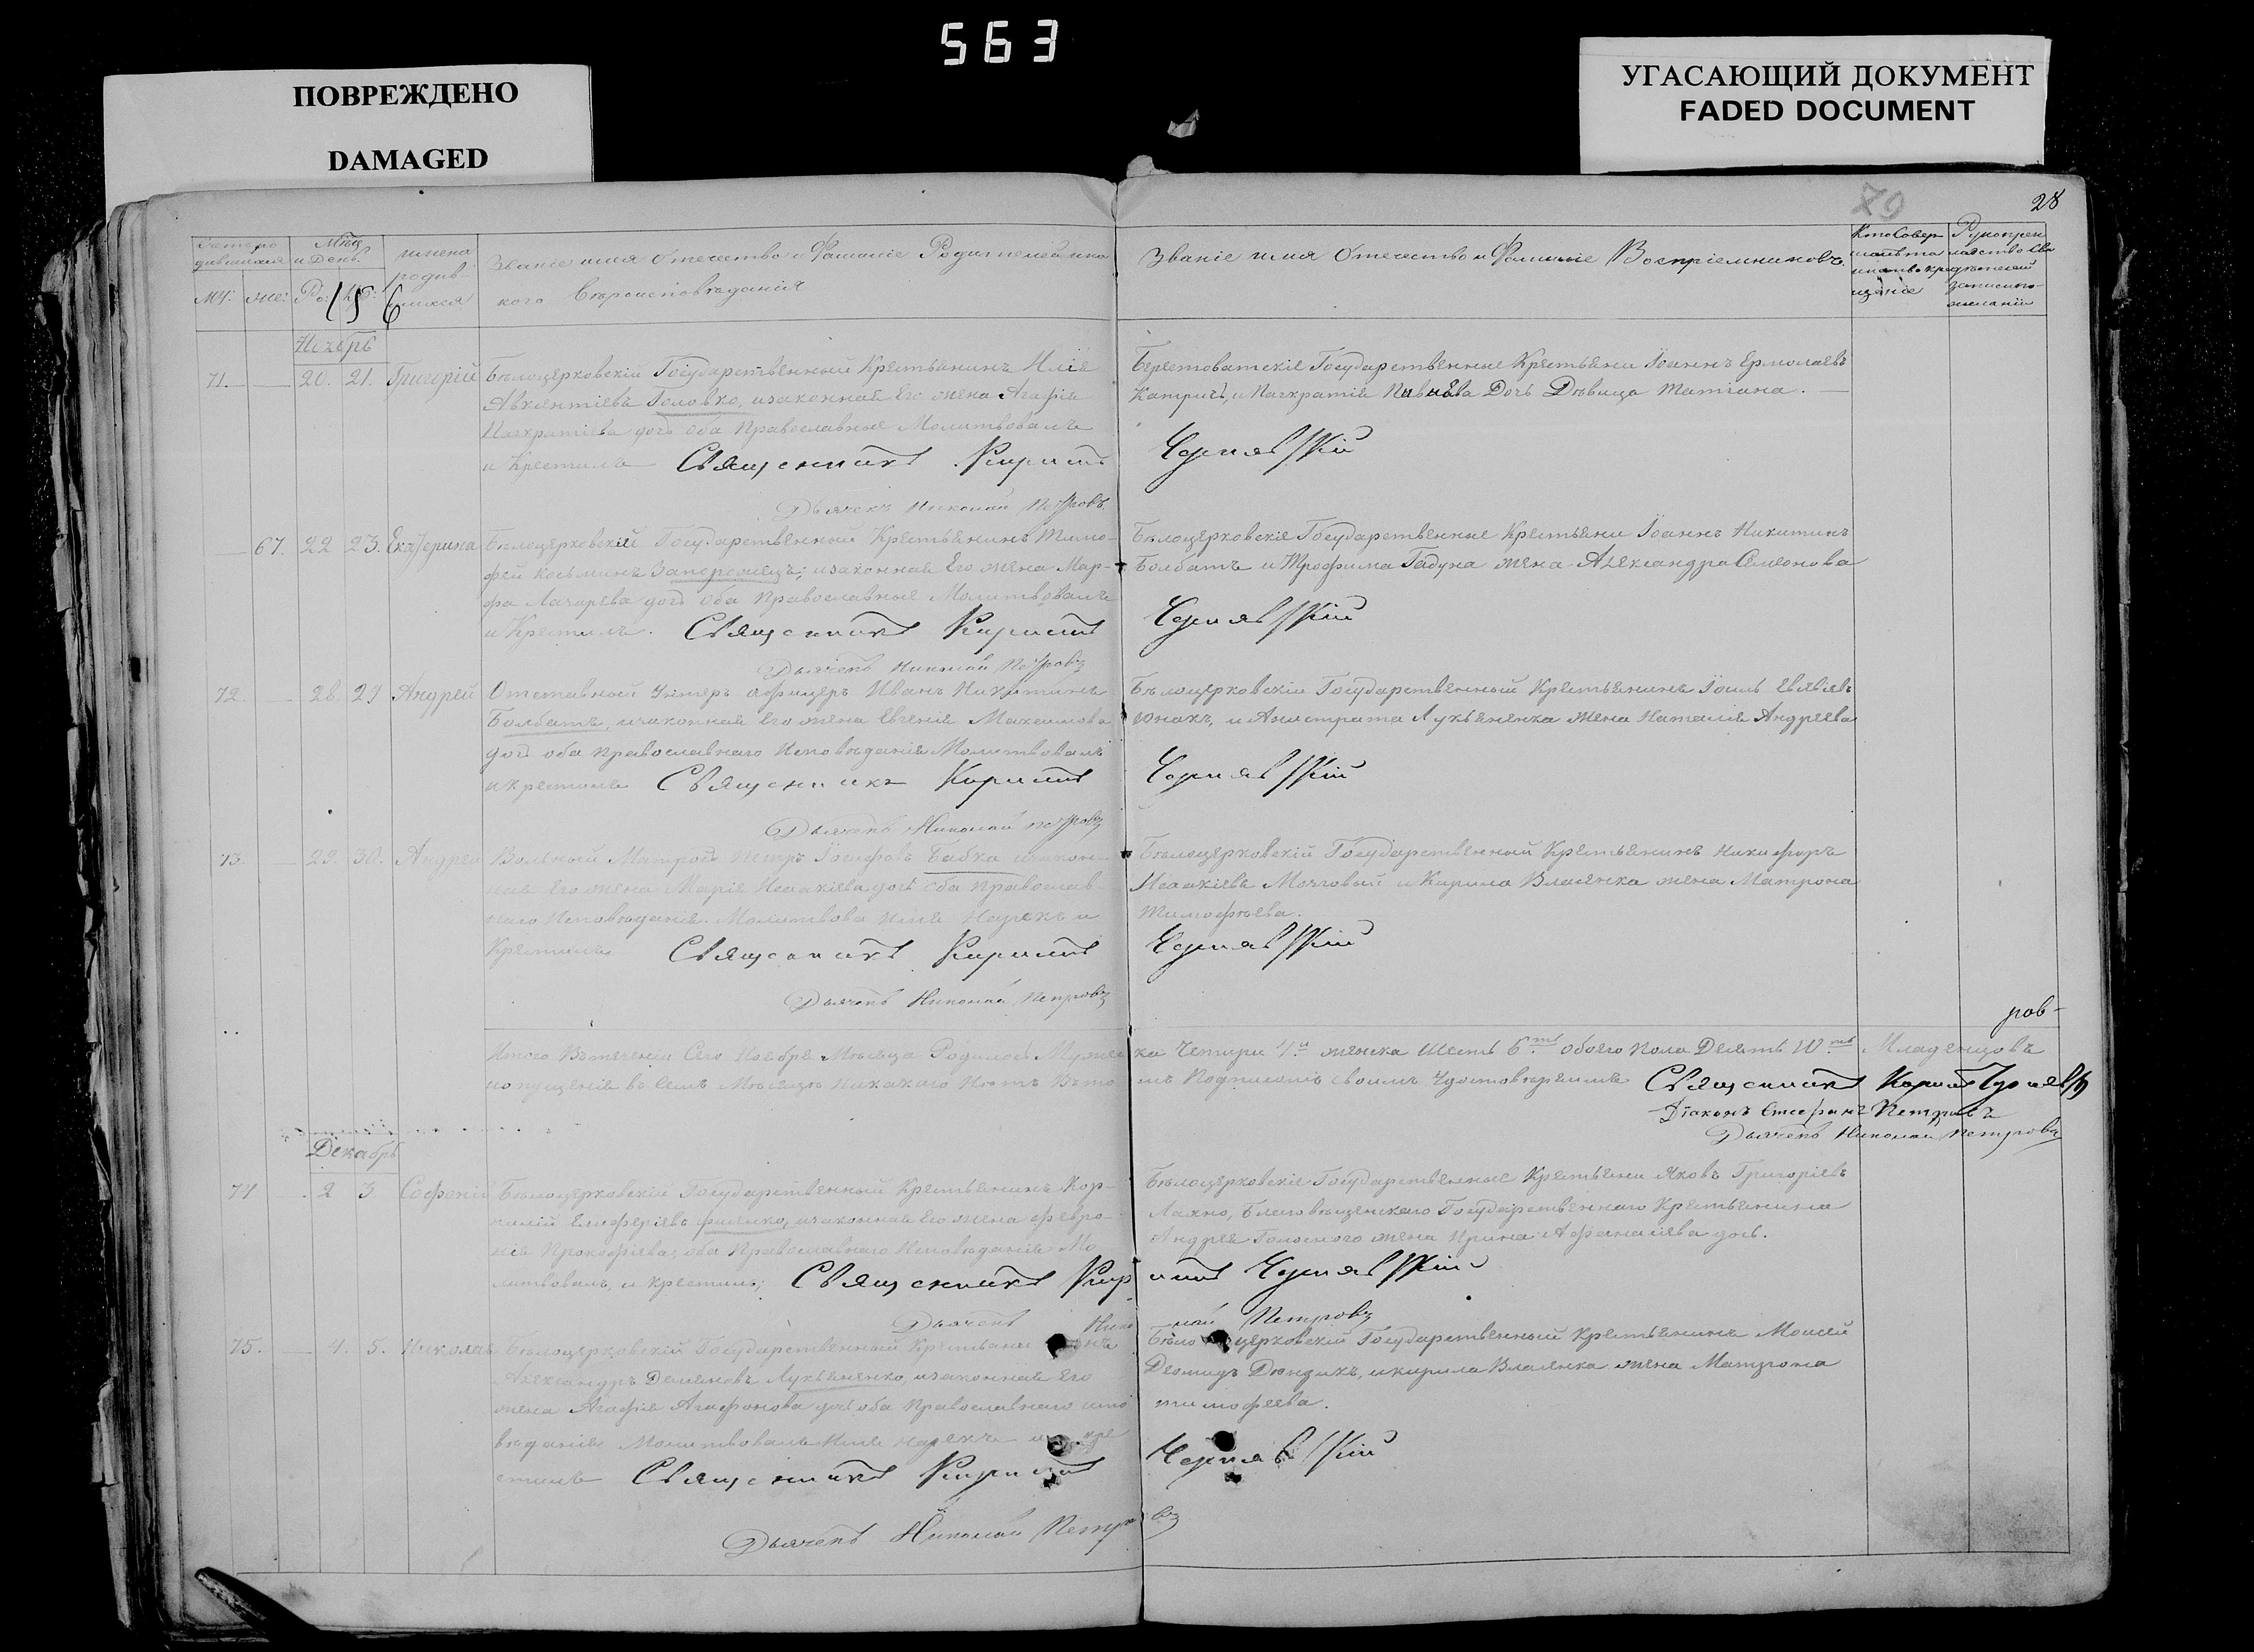 563
ПОВРЕЖДЕНО
DAMAGED
УГАСАЮЩИЙ ДОКУМЕНТ
FADED DOCUMENT
28
Мѣсц
и День
имена
родив-
шихся
Званіе имя Отечество и Фамиліе Родителей и ка
кого Вѣроисповѣданія
Званіе имя Отечество и Фамиліе Воспріемниковъ
Кто Совер
шалъ та
инство кре
щеніе
Рукопри
кладство сви
дѣтелей
записи по
желанію
му: же:
Ноябрь
71. 20. 21. Григорій
Бѣлоцерковскій Государственный Крестьянинъ Илія
Авксентіевъ Головко, изаконная Его жена Агафія
Панкратіева дочь оба Православные Молитвовалъ
и Крестилъ Священникъ Кирилъ
Дьячекъ Николай Петровъ
Берестоватскіе Государственные Крестьяни Іоаннъ Ермолаевъ
и Панкратія Дочь Дѣвица Татіана.
Чернявскій
67. 22 23. Екатерина
Бѣлоцерковскій Государственный Крестьянинъ Тимо-
фей Косьминъ Запорожецъ, изаконная Его жена Мар-
фа Лазарева дочь оба Православные Молитвовалъ
и Крестилъ. Священникъ Кирилъ
Дьячекъ Николай Петровъ
Бѣлоцерковскіе Государственные Крестьяни Іоаннъ Никитинъ
Болбатъ и Трофима Гадуна жена Александра Семеонова
Чернявскій
72. 28. 29 Андрей
Отставный Унтеръ афицеръ Иванъ Никитинъ
Болбатъ, изаконная Его жена Евгенія Максимова
дочь оба Православнаго Исповѣданія Молитвовалъ
и крестилъ Священникъ Кирилъ
Дьячекъ Николай Петровъ
Бѣлоцерковскій Государственный Крестьянинъ
Юнакъ, и Лукьяненка жена Наталія Андреева
Чернявскій
73. 29. 30. Андрей
Вольный Матросъ Петръ Іосифовъ Бабка изакон-
ная Его жена Марія Исаакіева дочь оба Православ-
наго Исповѣданія. Молитвова имя Нарекъ и
Крестилъ Священникъ Кирилъ
Дьячекъ Николай Петровъ
Бѣлоцерковскій Государственный Крестьянинъ Никифоръ
Исаакіевъ Мозговый и Кирила Власенка жена Матрона
Тимофѣева.
Чернявскій
ров-
Итого Втеченіи Сего Ноября Мѣсяца Родилось Мужес ка Четири 4и женска Шесть 6ть обоего пола Десять 10ть Младенцовъ
попущенія въ Семъ Мѣсяцѣ Никакого Нѣтъ Вто мъ Подписомъ своимъ Удостовѣряемъ Священникъ Кирилъ Черняв
Діаконъ Стефанъ Петровъ
Дьячекъ Николай Петровъ
Декабрь
74 2 3 Софоній
Бѣлоцерковскій Государственный Крестьянинъ Кор-
нилій Елиферіевъ изаконная Его жена Февро-
нія Прокофіева, оба Православнаго Исповѣданія Мо
литвовалъ, и крестилъ; Священникъ Кир илъ Чернявскій
Дьячекъ Нико лай Петровъ
Бѣлоцерковскіе Государственные Крестьяни Яковъ Григоріевъ
Лахно, Благовѣщенскаго Государственнаго Крестьянина
Андрея Голосного жена Ирина Афанасіева дочь.
75. 4. 5. Николай
Бѣлоцерковскій Государственный Крестьянинъ
Александръ Лукьяненко, изаконная Его
жена Агафія Агафонова дочь оба Православнаго испо
вѣданія Молитвовалъ Имя нарекъ и кре
стилъ Священникъ Кирилъ
Дьячекъ Николай Петро въ
Бѣлоцерковскій Государственный Крестьянинъ Моисей
Деомидъ Дюндикъ, и кирила Власенка жена Матрона
тимофеева.
Чернявскій